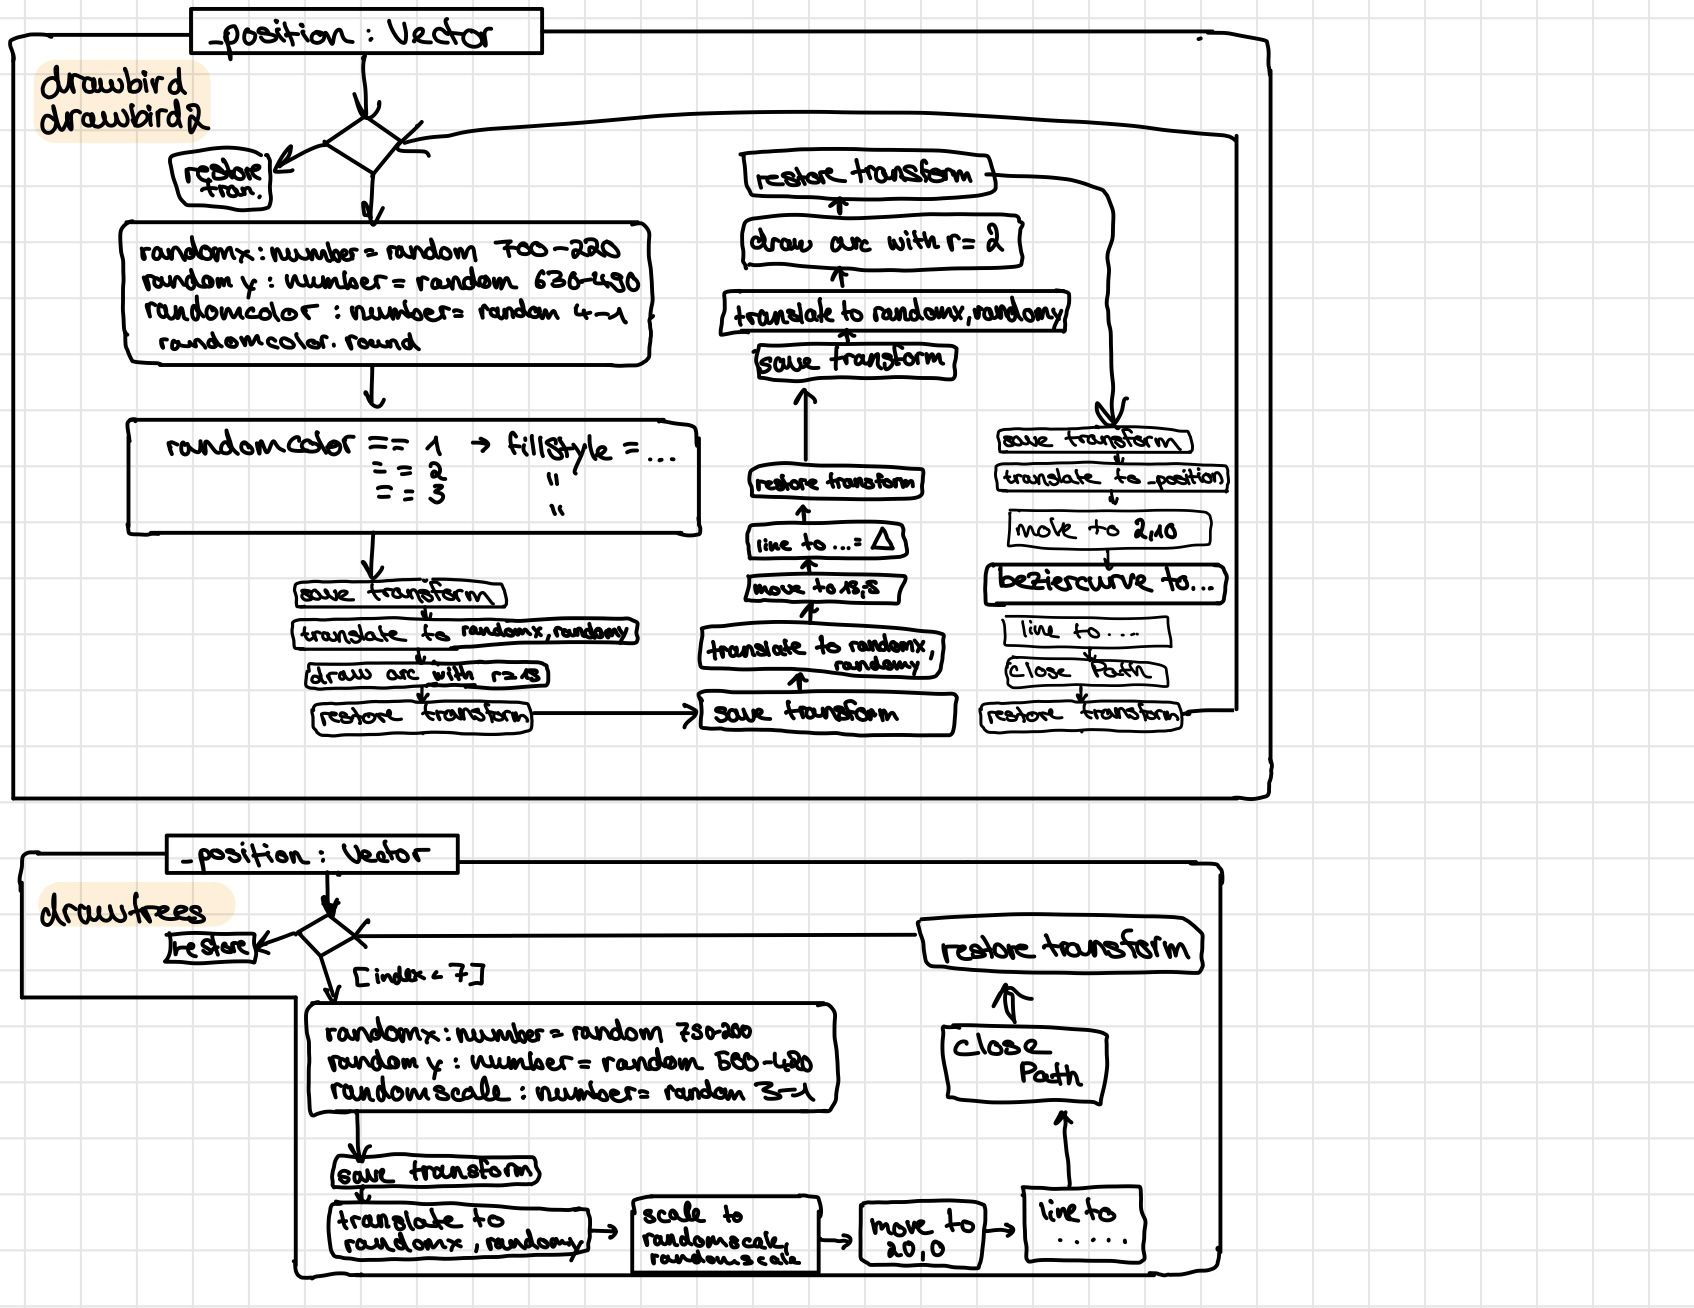 _position : Vector
drawbird
drawbird2
restore
tran.
randomx : number = random 700-220
random y : number = random 630-490
randomcolor : number = random 4-1
randomcolor. round
randomcolor == 1 → fillstyle = ...
== 2 "
== 3 "
save transform
translate to randomx, randomy
draw arc with r=15
restore transform
save transform
translate to randomx,
randomy
move to 15,5
line to ... = △
restore transform
save transform
translate to randomx, randomy
draw arc with r= 2
restore transform
save transform
translate to _position
move to 2,10
beziercurve to...
line to ....
close Path
restore transform
_position : Vector
drawtrees
restore
[index < 7]
randomx : number = random 750-200
random y : number = random 580-480
randomscale : number = random 3-1
save transform
translate to
randomx, randomy
scale to
randomscale,
randomscale
move to
20,0
line to
.....
close
Path
restore transform